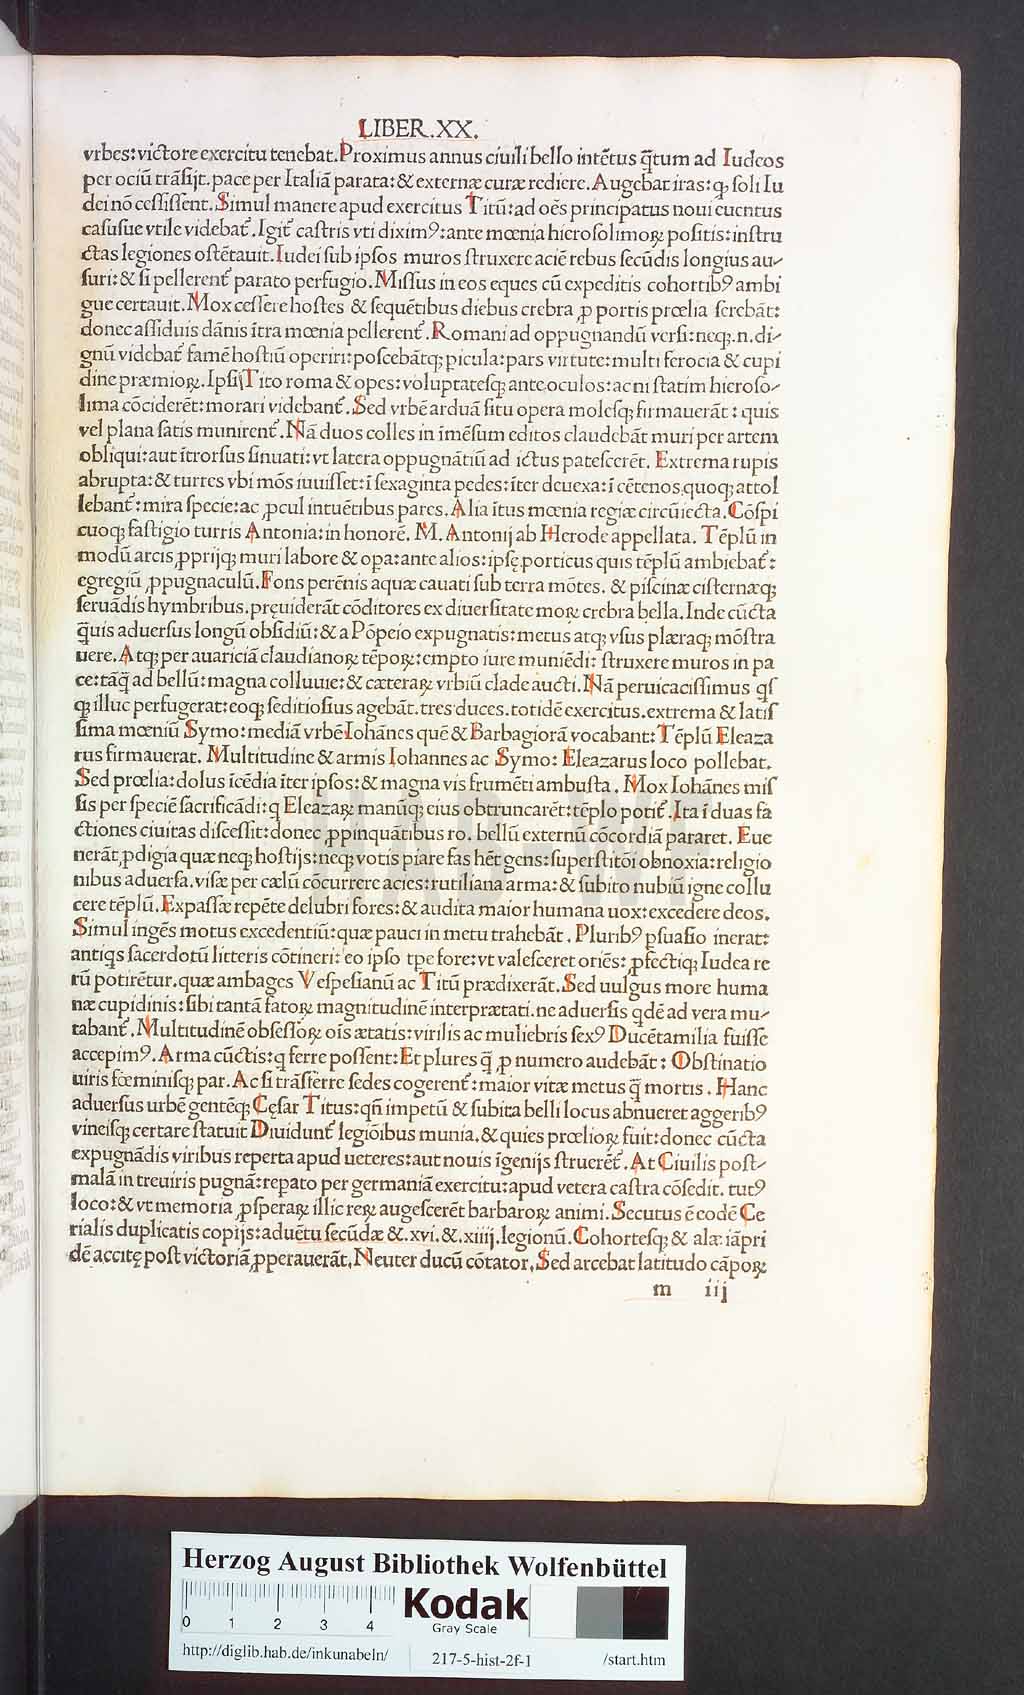 LIBER.XX.
vrbes:victore exercitu tenebat.Proximus annus ciuili bello intẽtus q̃tum ad Iudeos
per ociũ trãsijt.pace per Italiã parata:& externæ curæ rediere.Augebat iras:ꝙ soli Iu
dei nõ cessissent.Simul manere apud exercitus Titũ:ad oẽs principatus noui euentus
casusue vtile videbat᷑.Igit᷑ castris vti diximꝰ:ante mœnia hierosolimoꝝ positis:instru
ctas legiones ostẽtauit.Iudei sub ipsos muros struxere aciẽ rebus secũdis longius au-
suri:& si pellerent᷑ parato perfugio.Missus in eos eques cũ expeditis cohortibꝰ ambi
gue certauit.Mox cessere hostes & sequẽtibus diebus crebra ꝓ portis prœlia serebãt:
donec assiduis dãnis ĩtra mœnia pellerent᷑.Romani ad oppugnandũ versi:neqꝫ.n.di-
gnũ videbat᷑ famẽ hostiũ operiri:poscebãtqꝫ picula:pars virtute:multi ferocia & cupi
dine præmioꝝ.Ipsi Tito roma & opes:voluptatesqꝫ ante oculos:ac ni statim hieroso-
lima cõciderẽt:morari videbant᷑.Sed vrbẽ arduã situ opera molesqꝫ firmauerãt:quis
vel plana satis munirent᷑.Nã duos colles in ĩmẽsum editos claudebãt muri per artem
obliqui:aut ĩtrorsus sinuati:vt latera oppugnãtiũ ad ictus patescerẽt.Extrema rupis
abrupta:& turres vbi mõs iuuisset:ĩ sexaginta pedes:ĩter deuexa:ĩ cẽtenos quoqꝫ attol
lebant᷑:mira specie:ac ꝓcul intuẽtibus pares.Alia ĩtus mœnia regiæ circũiecta.Cõspi
cuoqꝫ fastigio turris Antonia:in honorẽ.M.Antonij ab Herode appellata.Tẽplũ in
modũ arcis ꝓprijqꝫ muri labore & opa:ante alios:ipsę porticus quis tẽplũ ambiebat᷑:
egregiũ ꝓpugnaculũ.Fons perẽnis aquæ cauati sub terra mõtes.& piscinæ cisternæqꝫ
seruãdis hymbribus.pręuiderãt cõditores ex diuersitate moꝝ crebra bella.Inde cũcta
q̃uis aduersus longũ obsidiũ:& a Põpeio expugnatis:metus atqꝫ vsus plæraqꝫ mõstra
uere.Atqꝫ per auariciã claudianoꝝ tẽpoꝝ:empto iure muniẽdi:struxere muros in pa
ce:tãq̃ ad bellũ:magna colluuie:& cæteraꝝ vrbiũ clade aucti.Nã peruicacissimus qs̃
qꝫ illuc perfugerat:eoqꝫ seditiosius agebãt.tres duces.totidẽ exercitus.extrema & latis
sima mœniũ Symo:mediã vrbẽ Iohãnes quẽ & Barbagiorã vocabant:Tẽplũ Eleaza
rus firmauerat.Multitudine & armis Iohannes ac Symo:Eleazarus loco pollebat.
Sed prœlia:dolus ĩcẽdia ĩter ipsos:& magna vis frumẽti ambusta.Mox Iohãnes mis
sis per speciẽ sacrificãdi:q Eleazaꝝ manũqꝫ eius obtruncarẽt:tẽplo potit᷑.Ita ĩ duas fa
ctiones ciuitas discessit:donec ꝓpinquãtibus ro.bellũ externũ cõcordiã pararet.Eue
nerãt ꝓdigia quæ neqꝫ hostijs:neqꝫ votis piare fas hẽt gens:superstitõi obnoxia:religio
nibus aduersa.visæ per cælũ cõcurrere acies:rutiliana arma:& subito nubiũ igne collu
cere tẽplũ.Expassæ repẽte delubri fores:& audita maior humana uox:excedere deos.
Simul ingẽs motus excedentiũ:quæ pauci in metu trahebãt.Pluribꝰ ꝑsuasio inerat:
antiqs sacerdotũ litteris cõtineri:eo ipso tp̃e fore:vt valesceret oriẽs:ꝓfectiqꝫ Iudea re
rũ potirẽtur.quæ ambages Vespesianũ ac Titũ prædixerãt.Sed uulgus more huma
næ cupidinis:sibi tantã fatoꝝ magnitudinẽ interprætati.ne aduersis qdẽ ad vera mu-
tabant᷑.Multitudinẽ obsessoꝝ oĩs ætatis:virilis ac muliebris sexꝰ Ducẽtamilia fuisse
accepimꝰ.Arma cũctis:q ferre possent:Et plures q̃ ꝓ numero audebãt:Obstinatio
uiris fœminisqꝫ par.Ac si trãsferre sedes cogerent᷑:maior vitæ metus q̃ mortis.Hanc
aduersus urbẽ gentẽqꝫ Cęsar Titus:qñ impetũ & subita belli locus abnueret aggeribꝰ
vineisqꝫ certare statuit Diuidunt᷑ legiõibus munia.& quies prœlioꝝ fuit:donec cũcta
expugnãdis viribus reperta apud ueteres:aut nouis ĩgenijs struerẽt᷑.At Ciuilis post-
malã in treuiris pugnã:repato per germaniã exercitu:apud vetera castra cõsedit.tutꝰ
loco:& vt memoria ꝓsperaꝝ illic reꝝ augescerẽt barbaroꝝ animi.Secutus ẽ eodẽ Ce
rialis duplicatis copijs:aduẽtu secũdæ &.xvi.&.xiiij.legionũ.Cohortesqꝫ & alæ iãpri
dẽ accitę post victoriã ꝓperauerãt.Neuter ducũ cõtator.Sed arcebat latitudo cãpoꝝ
m iij
HAB-WF
Herzog August Bibliothek Wolfenbüttel
0 1 2 3 4
Kodak
Gray Scale
http://diglib.hab.de/inkunabeln/ 217-5-hist-2f-1 /start.htm